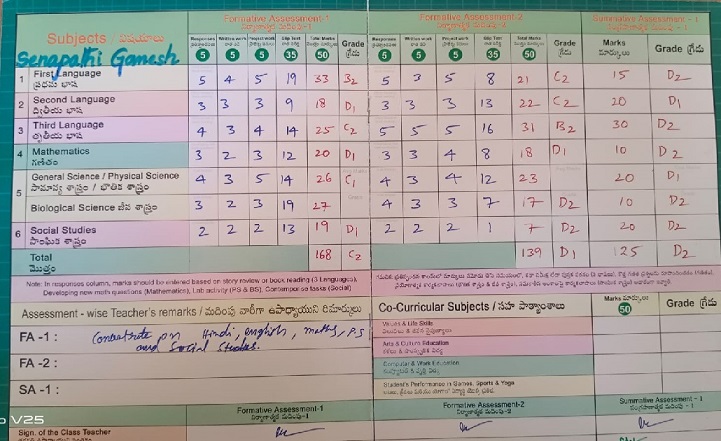 Formative Assessment-1 Formative Assessment-2 Summative Assessment - 1
Subjects / విషయాలు
Responses Written work Project work Slip Test Total Marks Grade గ్రేడు Responses Written work Project work Slip Test Total Marks Grade గ్రేడు Marks మార్కులు Grade గ్రేడు
5 5 5 35 50 5 5 5 35 50
Senapathi Ganesh
1 First Language 5 4 5 19 33 B2 5 3 5 8 21 C2 15 D2
ప్రథమ భాష
2 Second Language 3 3 3 9 18 D1 3 3 3 13 22 C2 20 D1
ద్వితీయ భాష
3 Third Language 4 3 4 14 25 C2 5 5 5 16 31 B2 30 D2
తృతీయ భాష
4 Mathematics 3 2 3 12 20 D1 3 3 4 8 18 D1 10 D2
గణితం
5 General Science / Physical Science 4 3 5 14 26 C1 4 3 4 12 23 20 D1
సామాన్య శాస్త్రం / భౌతిక శాస్త్రం
Biological Science జీవ శాస్త్రం 3 2 3 19 27 4 3 3 7 17 D2 10 D2
6 Social Studies 2 2 2 13 19 D1 2 2 2 1 7 D2 20 D2
సాంఘిక శాస్త్రం
Total 168 C2 139 D1 125 D2
మొత్తం
Note: In responses column, marks should be entered based on story review or book reading (3 Languages),
Developing new math questions (Mathematics), Lab activity (PS & BS), Contemporise tasks (Social)
Assessment - wise Teacher's remarks / మదింపు వారీగా ఉపాధ్యాయుని రిమార్కులు
Co-Curricular Subjects / సహ పాఠ్యాంశాలు Marks మార్కులు 50 Grade గ్రేడు
FA -1 : Concentrate on Hindi, english, maths, P.S
and Social Studies.
FA -2 :
SA -1 :
Values & Life Skills
Arts & Culture Education
Computer & Work Education
Student's Performance in Games, Sports & Yoga
Formative Assessment-1 Formative Assessment-2 Summative Assessment - 1
Sign. of the Class Teacher
V25